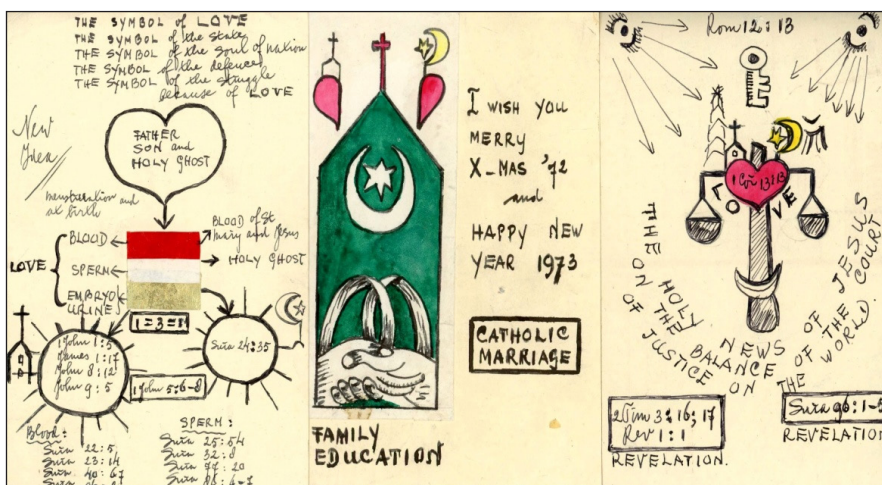 THE SYMBOL of LOVE
THE SYMBOL of the state
THE SYMBOL of the soul of nation
THE SYMBOL of the defence
THE SYMBOL of the struggle
because of LOVE
New
Idea
FATHER
SON and
HOLY GHOST
menstruation and
at birth
BLOOD
BLOOD of St
Mary and Jesus
HOLY GHOST
LOVE
SPERM
EMBRYO
URINE
1=3=1
1 John 1:5
James 1:17
John 8:12
John 9:5
Sura 24:35
1 John 5:6-8
Blood:
Sura 22:5
Sura 23:14
Sura 40:67
SPERM:
Sura 25:54
Sura 32:8
Sura 77:20
Sura 86:6-7
FAMILY
EDUCATION
I WISH YOU
MERRY
X-MAS '72
and
HAPPY NEW
YEAR 1973
CATHOLIC
MARRIAGE
Rom 12:13
1 Cor 13:13
LOVE
THE HOLY NEWS OF JESUS
ON THE BALANCE OF THE COURT
OF JUSTICE ON THE WORLD.
2 Tim 3:16,17
Rev 1:1
REVELATION.
Sura 96:1-5
REVELATION